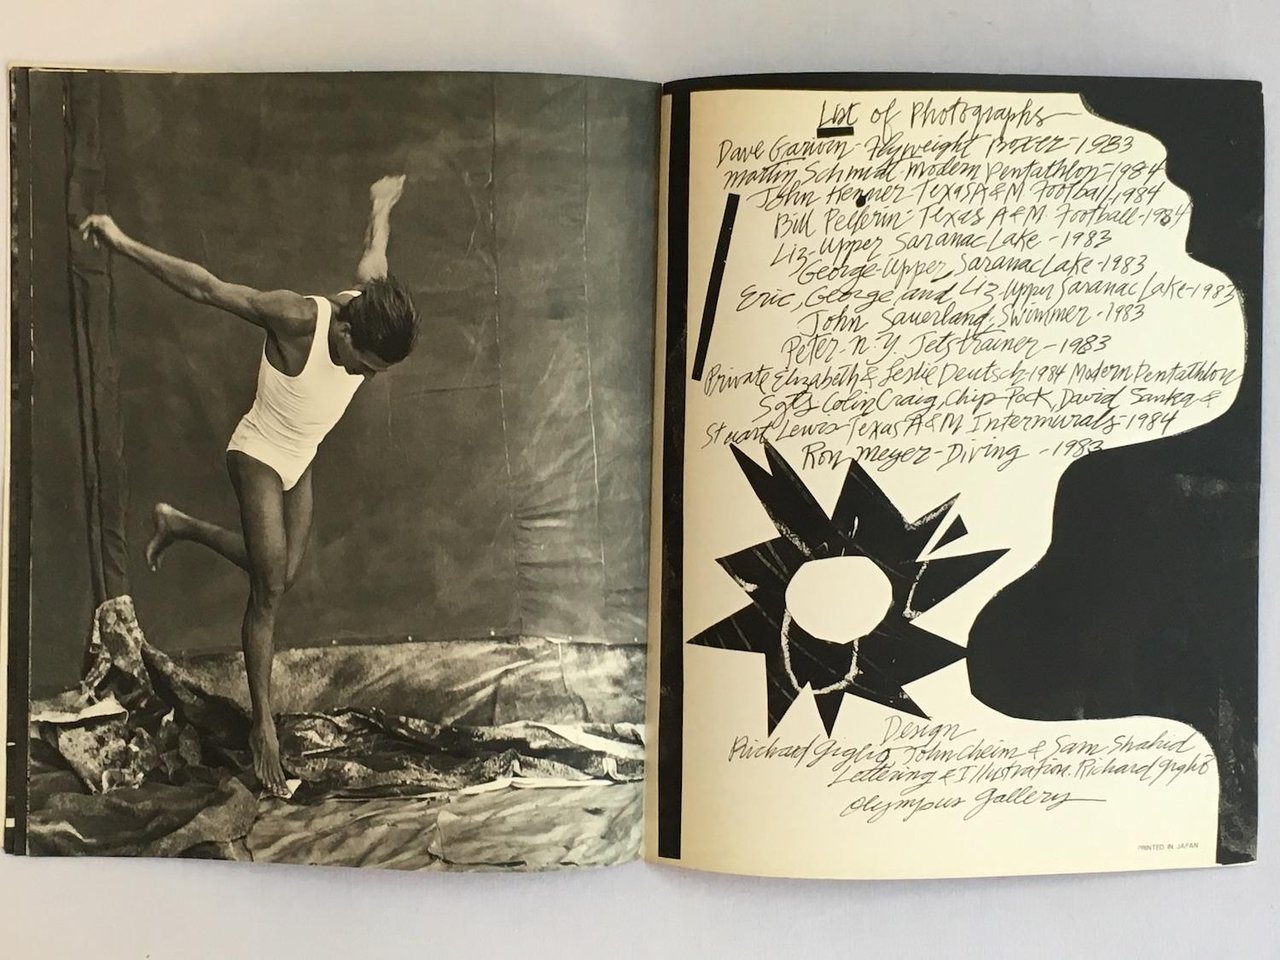 List of Photographs
Dave Garvin - Flyweight Boxer - 1983
Martin Schmidt Modern Pentathlon - 1984
John Henner Texas A & M Football, 1984
Bill Pellerin - Texas A & M Football - 1984
Liz - Upper Saranac Lake - 1983
George - Upper Saranac Lake - 1983
Eric, George and Liz - Upper Saranac Lake - 1983
John Sauerland, Swimmer - 1983
Peter - N.Y. Jets trainer - 1983
Private Elizabeth & Leslie Deutsch - 1984 Modern Pentathlon
Sgts Colin Craig, Chip Pack, David Sanka &
Stewart Lewis - Texas A & M Intermurals - 1984
Ron Meyer - Diving - 1983
Design
Richard Giglio, John Cheim & Sam Shahid
Lettering & Illustration. Richard Giglio
Olympus Gallery
PRINTED IN JAPAN